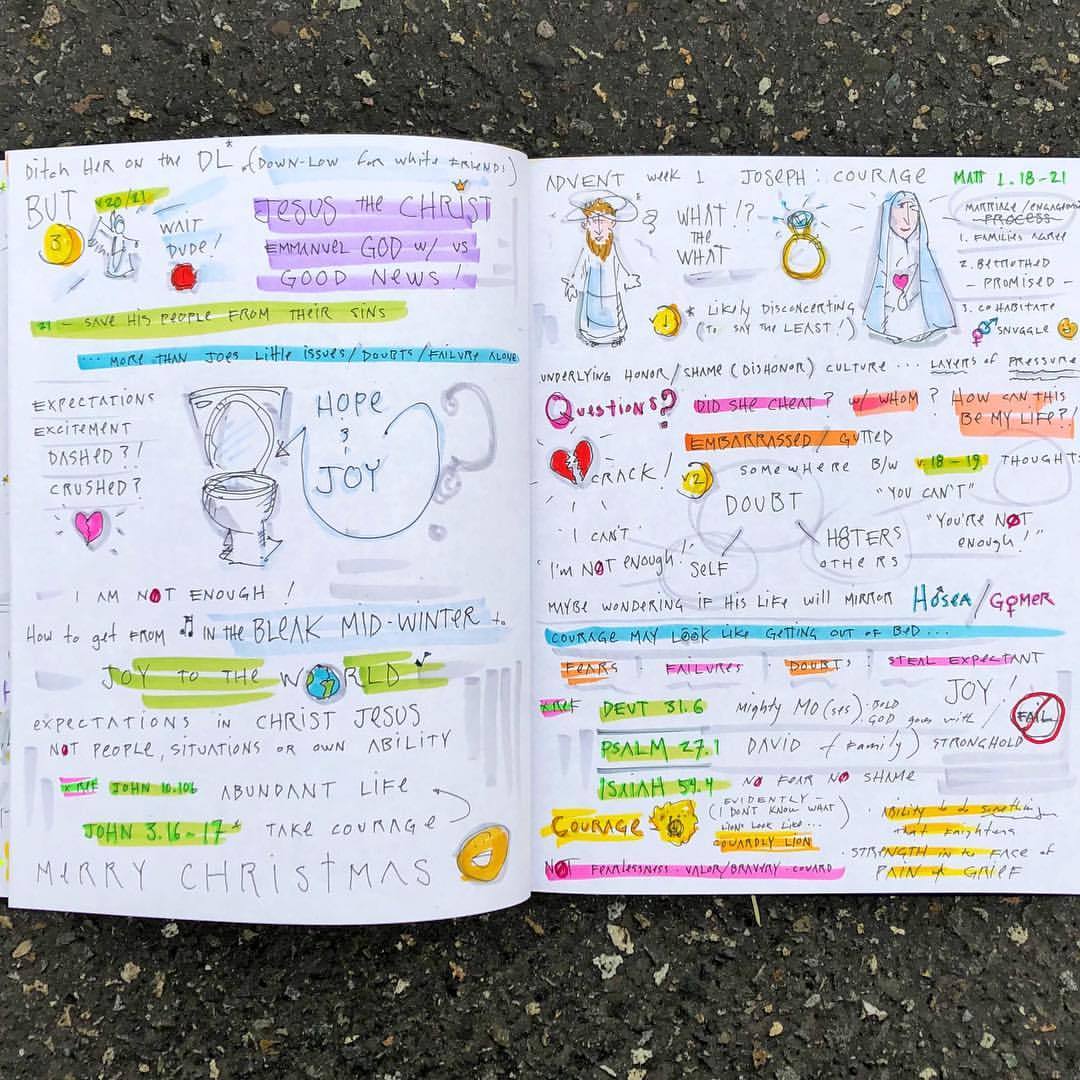 DITCH HER ON THE DL* (*DOWN-LOW FOR WHITE FRIENDS)
BUT
V20/21
3
WAIT
DUDE!
JESUS THE CHRIST
EMMANUEL GOD W/ US
GOOD NEWS!
21 - SAVE HIS PEOPLE FROM THEIR SINS
... MORE THAN JOES LITTLE ISSUES/DOUBTS/FAILURE ALONE
EXPECTATIONS
EXCITEMENT
DASHED?!
CRUSHED?
HOPE
&
JOY
I AM NOT ENOUGH!
HOW TO GET FROM IN THE BLEAK MID-WINTER TO
JOY TO THE WORLD
EXPECTATIONS IN CHRIST JESUS
NOT PEOPLE, SITUATIONS OR OWN ABILITY
XREF JOHN 10.10b ABUNDANT LIFE
JOHN 3.16-17* TAKE COURAGE
MERRY CHRISTMAS
ADVENT WEEK 1 JOSEPH: COURAGE MATT 1.18-21
WHAT!?
THE
WHAT
MARRIAGE/ENGAGEMENT
PROCESS
1. FAMILIES AGREE
2. BETROTHED
- PROMISED -
3. COHABITATE
SNUGGLE
1
* LIKELY DISCONCERTING
(TO SAY THE LEAST!)
UNDERLYING HONOR/SHAME (DISHONOR) CULTURE ... LAYERS OF PRESSURE
QUESTIONS? DID SHE CHEAT? W/ WHOM? HOW CAN THIS
BE MY LIFE?!
EMBARRASSED/GUTTED
CRACK!
V2
SOMEWHERE B/W V.18-19 THOUGHTS
DOUBT
"YOU CAN'T"
"YOU'RE NOT
ENOUGH!"
"I CAN'T
"I'M NOT ENOUGH!"
SELF
H8TERS
OTHERS
MAYBE WONDERING IF HIS LIFE WILL MIRROR HOSEA/GOMER
COURAGE MAY LOOK LIKE GETTING OUT OF BED...
FEARS FAILURES DOUBTS STEAL EXPECTANT
JOY!
XREF DEUT 31.6 MIGHTY MO(SES) - BOLD
GOD GOES WITH/
FAIL
PSALM 27.1 DAVID (FAMILY) STRONGHOLD
ISAIAH 54.4 NO FEAR NO SHAME
COURAGE
EVIDENTLY -
(I DON'T KNOW WHAT
LIONS LOOK LIKE...
COWARDLY LION
· ABILITY TO DO SOMETHING
THAT FRIGHTENS
· STRENGTH IN THE FACE OF
PAIN or GRIEF
NOT FEARLESSNESS · VALOR/BRAVERY · COWARD